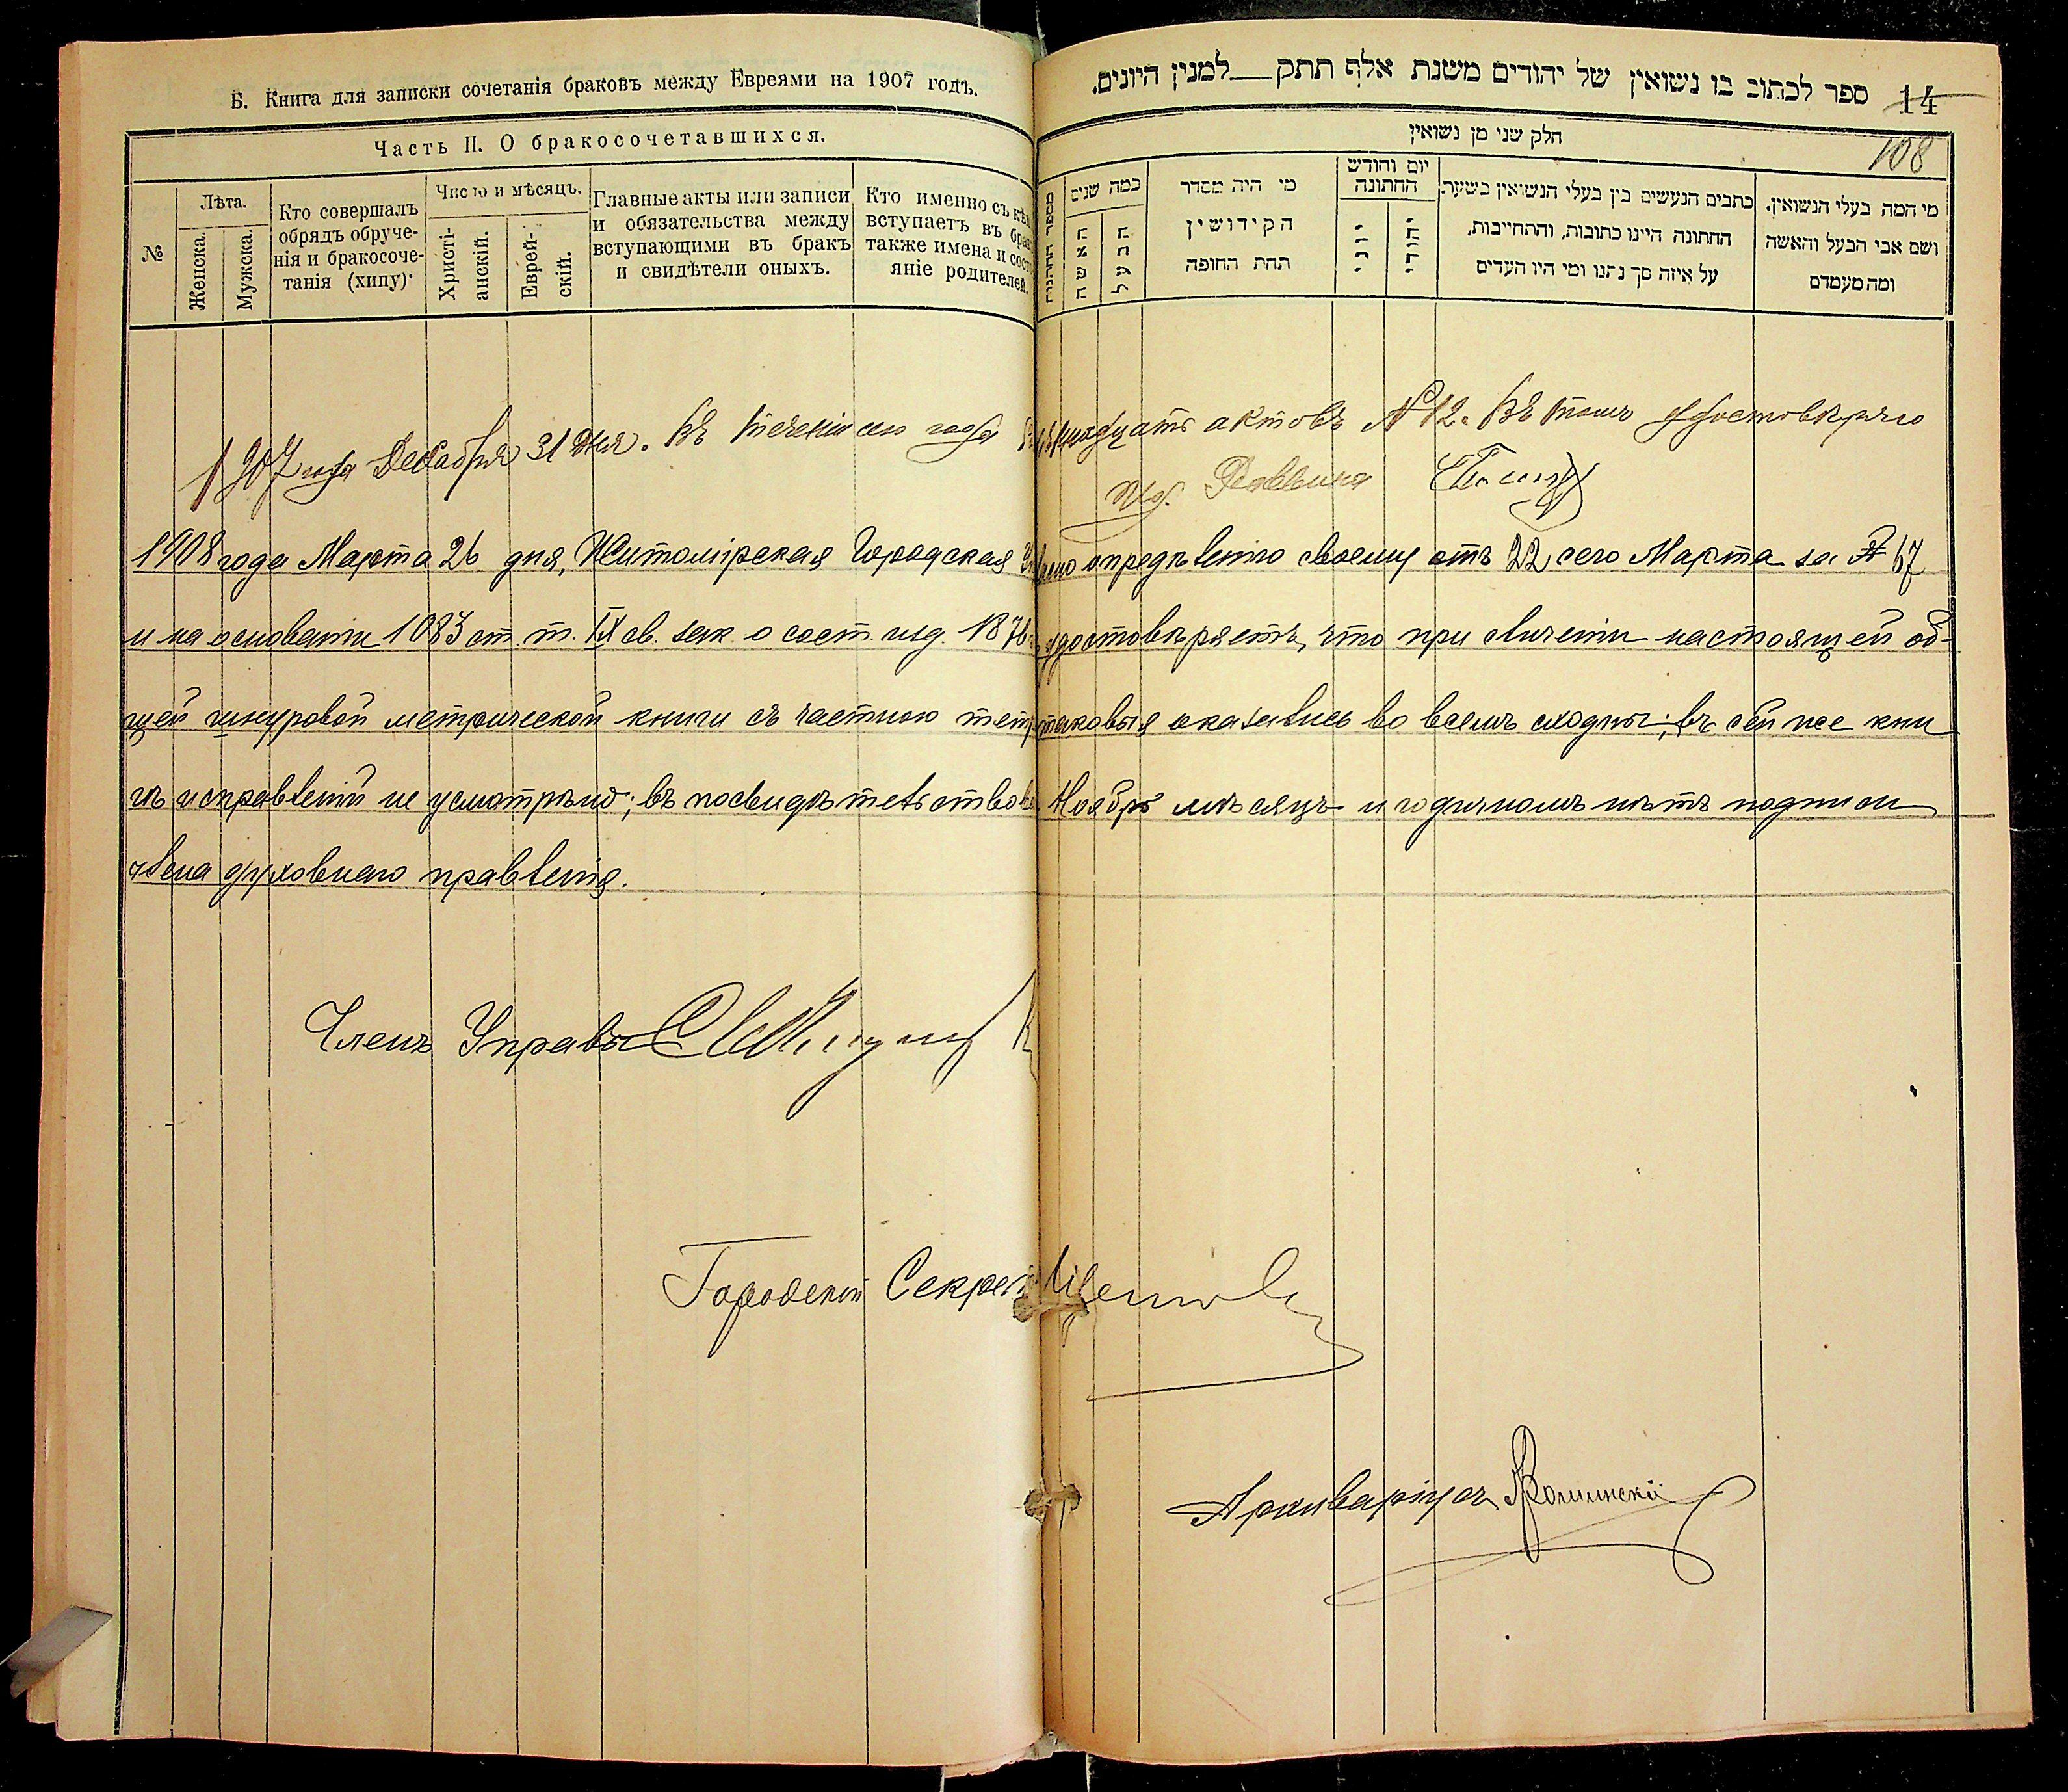 Б. Книга для записки сочетанія браковъ между Евреями на 1907 годъ.
Часть II. О бракосочетавшихся.
№
Лѣта.
Женска.
Мужска.
Кто совершалъ
обрядъ обруче-
нія и бракосоче-
танія (хипу)
Число и мѣсяцъ.
Христі-
анскій.
Еврей-
скій.
Главные акты или записи
и обязательства между
вступающими въ бракъ
и свидѣтели оныхъ.
Кто именно съ
вступаетъ въ
также имена и
яніе родителей.
14
ספר לכתוב בו נשואין של יהודים משנת אלף תתק למנין היונים.
108
חלק שני מן נשואין
מספר החתונות
כמה שנים
האשה
הבעל
מי היה מסדר
הקידושין
תחת החופה
יום וחודש
החתונה
יוני
יהודי
כתבים הנעשים בין בעלי הנשואין בשעת
החתונה היינו כתובות, והתחייבות,
על איזה סך נתנו ומי היו העדים
מי המה בעלי הנשואין.
ושם אבי הבעל והאשה
ומה מעמדם
1907 года Декабря 31 дня. Въ теченіи сего года актовъ № 12. Въ томъ удостовѣряю
Раввина
1908 года Марта 26 дня, Житомірская Городская опредѣленію своему отъ 22 сего Марта за № 67
и на основаніи 1083 ст. т. IX св. зак. о сост. изд. 1876 удостовѣряетъ, что при сличеніи настоящей об-
щей шнуровой метрической книги съ частною таковыя оказались во всемъ сходны; въ сей же кни
гѣ исправленій не усмотрѣно; въ Ноябрь мѣсяцъ и годичномъ нѣтъ подписи
члена духовнаго правленія.
Членъ Управы
Городской Секрет
Архиваріусъ